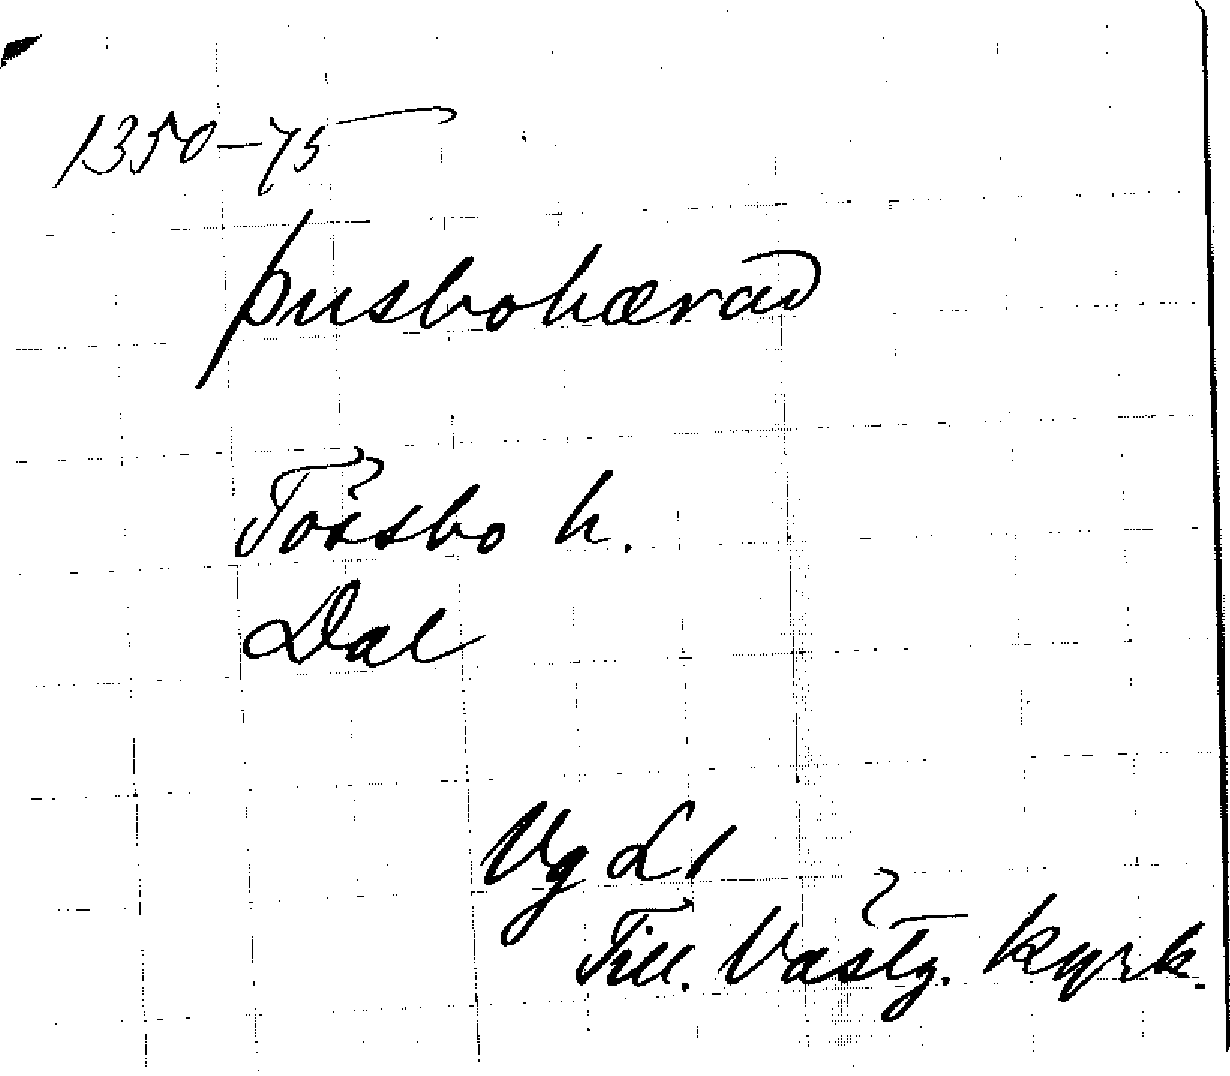 1350-75
þusbohærað
Tössbo h.
Dal
Vg L 1
Till. Västg. kyrk.